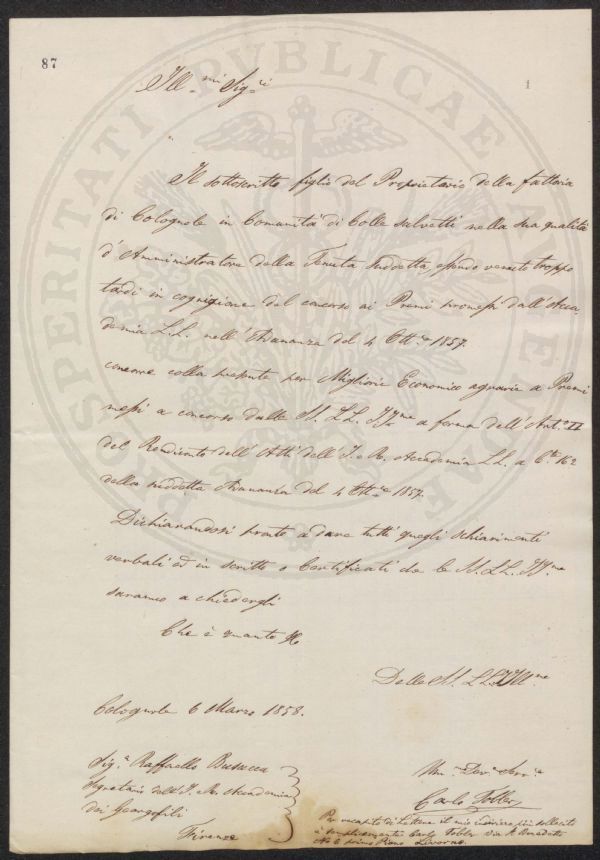 87
1
PROSPERITATI PVBLICAE AVGENDAE
Ill.mi Sig.ri
Il sottoscritto figlio del Proprietario della fattoria
di Colognole in Comunità di Colle salvetti nella sua qualità
d'Amministratore della Tenuta suddetta, essendo venuto troppo
tardi in cognizione del concorso ai Premi promessi dall'Acca-
demia LL. nell'Adunanza del 4 Ott.e 1857.
concorre colla presente per Migliorie Economico agrarie a Premi
messi a concorso dalle S.S. LL. Ill.me a forma dell'Art.o II
del Rendiconto dell'Atti dell'I. e R. Accademia LL. a C.te 162
della suddetta Adunanza del 4 Ott.e 1857.
Dichiarandosi pronto a dare tutti quegli schiarimenti
verbali ed in scritto o Certificati che le S.S. LL. Ill.me
saranno a chiedergli
Che è quanto
Delle S.S. LL. Ill.me
Colognole 6 Marzo 1858.
Sig.e Raffaello Busacca
Segretario dell'I. e R. Accademia
dei Georgofili
Firenze
Um.o Dev.o Serv.e
Carlo Tobler
Per recapito di Lettere il mio indirizzo più sollecito
è semplicemente Carlo Tobler Via S. Benedetto
No 6 primo Piano Livorno.